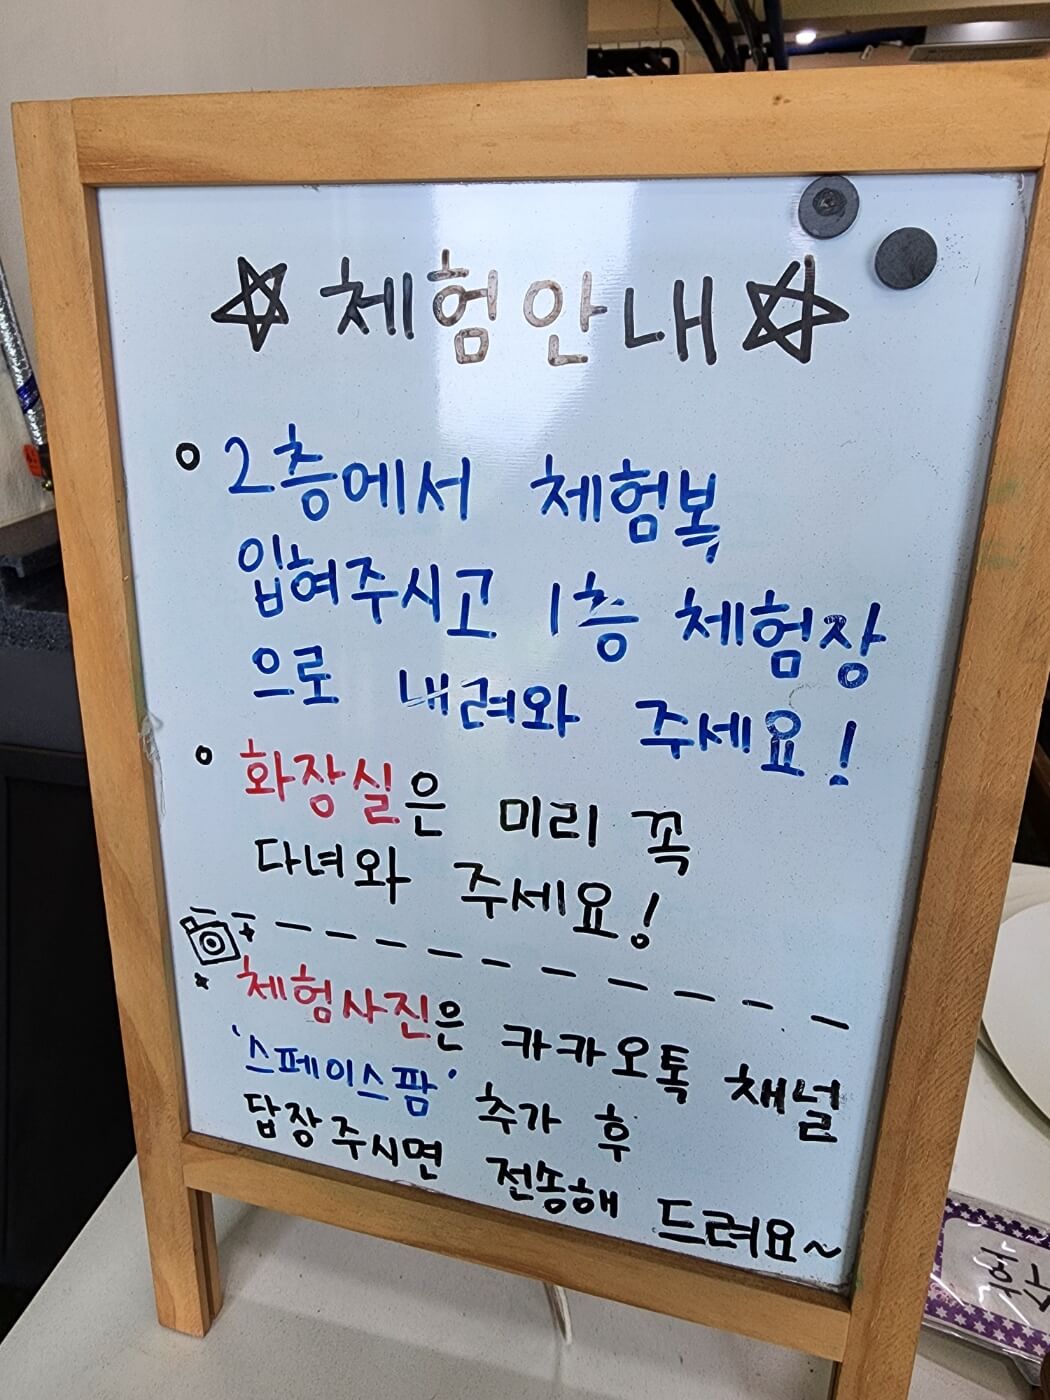 ☆체험안내☆
○ 2층에서 체험복
입혀주시고 1층 체험장
으로 내려와 주세요!
○ 화장실은 미리 꼭
다녀와 주세요!
체험사진은 카카오톡 채널
'스페이스팜' 추가 후
답장주시면 전송해 드려요~